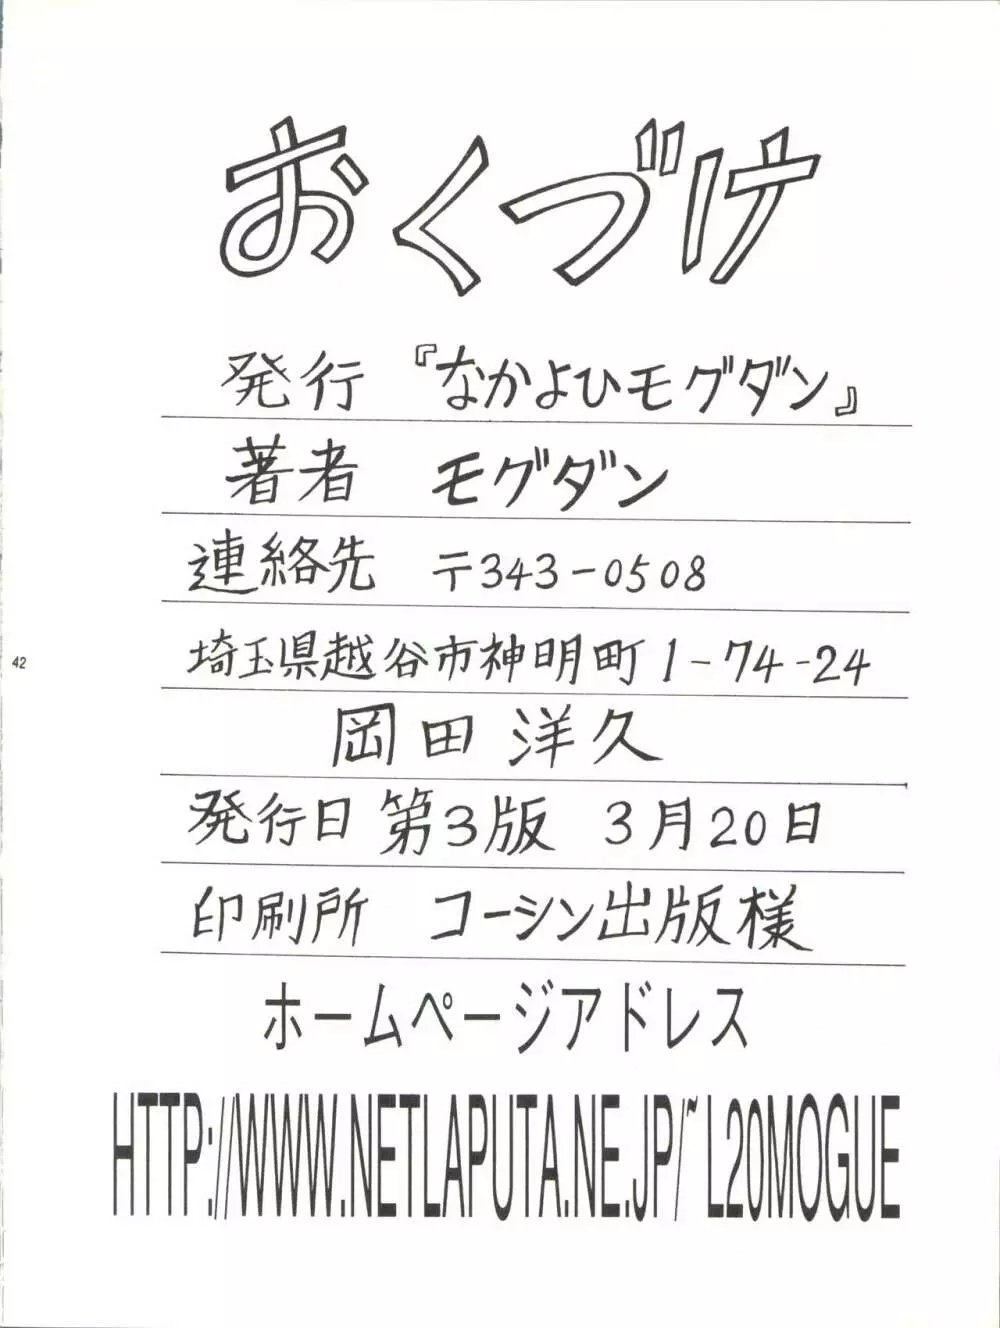 おくづけ
発行 『なかよひモグダン』
著者 モグダン
連絡先 〒343-0508
埼玉県越谷市神明町1-74-24
岡田洋久
発行日 第3版 3月20日
印刷所 コーシン出版様
42
ホームページアドレス
HTTP://WWW.NETLAPUTA.NE.JP/~L20MOGUE